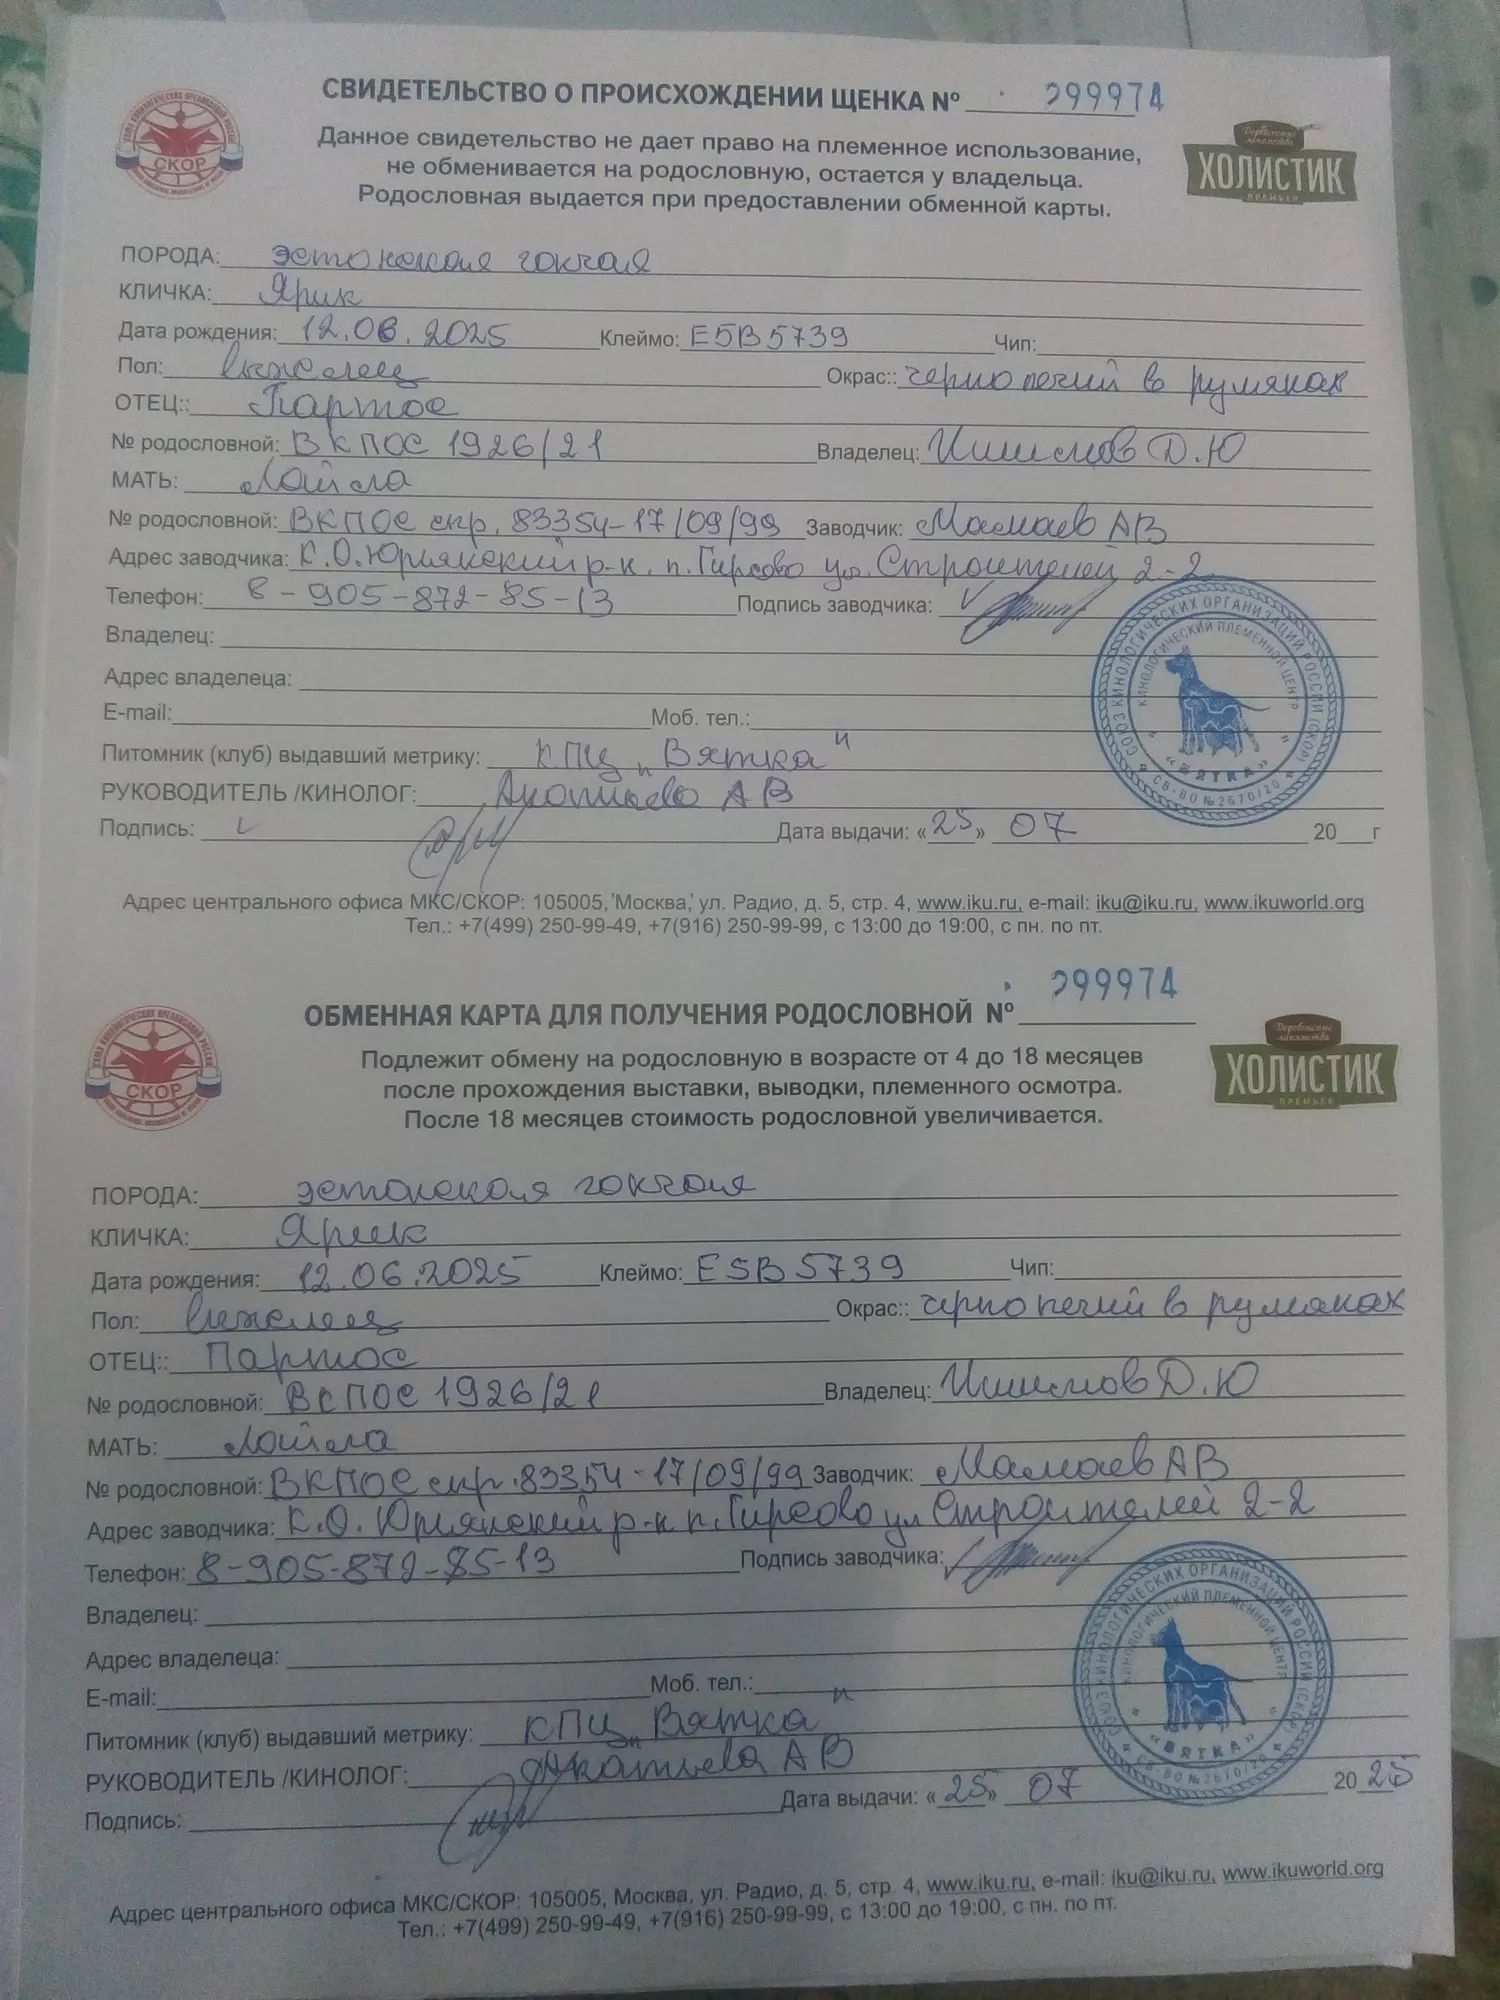 СВИДЕТЕЛЬСТВО О ПРОИСХОЖДЕНИИ ЩЕНКА № 299974
Данное свидетельство не дает право на племенное использование,
не обменивается на родословную, остается у владельца.
Родословная выдается при предоставлении обменной карты.
СКОР
Деревенские лакомства
ХОЛИСТИК
ПРЕМЬЕР
ПОРОДА: эстонская гончая
КЛИЧКА: Ярик
Дата рождения: 12.06.2025 Клеймо: Е5В5739 Чип:
Пол: выжлец Окрас:: чернопегий в румянах
ОТЕЦ:: Партос
№ родословной: ВКПОС 1926/21 Владелец: Ишимов Д.Ю
МАТЬ: Лайла
№ родословной: ВКПОС скр. 83354-17/09/99 Заводчик: Мамаев АВ
Адрес заводчика: К.О. Юрьянский р-н. п. Гирсово ул. Строителей 2-2
Телефон: 8-905-872-85-13 Подпись заводчика:
Владелец:
Адрес владелеца:
E-mail: Моб. тел.:
Питомник (клуб) выдавший метрику: КПЦ „Вятка"
РУКОВОДИТЕЛЬ /КИНОЛОГ: АВ
Подпись: Дата выдачи: «25» 07 20 г
СОЮЗ КИНОЛОГИЧЕСКИХ ОРГАНИЗАЦИЙ РОССИИ (СКОР)
КИНОЛОГИЧЕСКИЙ ПЛЕМЕННОЙ ЦЕНТР
«ВЯТКА»
СВ-ВО №2670/20
Адрес центрального офиса МКС/СКОР: 105005, Москва, ул. Радио, д. 5, стр. 4, www.iku.ru, e-mail: iku@iku.ru, www.ikuworld.org
Тел.: +7(499) 250-99-49, +7(916) 250-99-99, с 13:00 до 19:00, с пн. по пт.
ОБМЕННАЯ КАРТА ДЛЯ ПОЛУЧЕНИЯ РОДОСЛОВНОЙ № 299974
Подлежит обмену на родословную в возрасте от 4 до 18 месяцев
после прохождения выставки, выводки, племенного осмотра.
После 18 месяцев стоимость родословной увеличивается.
СКОР
Деревенские лакомства
ХОЛИСТИК
ПРЕМЬЕР
ПОРОДА: эстонская гончая
КЛИЧКА: Ярик
Дата рождения: 12.06.2025 Клеймо: Е5В5739 Чип:
Пол: выжлец Окрас:: чернопегий в румянах
ОТЕЦ:: Партос
№ родословной: ВКПОС 1926/21 Владелец: Ишимов Д.Ю
МАТЬ: Лайла
№ родословной: ВКПОС скр. 83354-17/09/99 Заводчик: Мамаев АВ
Адрес заводчика: К.О. Юрьянский р-н п. Гирсово ул Строителей 2-2
Телефон: 8-905-872-85-13 Подпись заводчика:
Владелец:
Адрес владелеца:
E-mail: Моб. тел.:
Питомник (клуб) выдавший метрику: КПЦ „Вятка"
РУКОВОДИТЕЛЬ /КИНОЛОГ: АВ
Подпись: Дата выдачи: «25» 07 2025
СОЮЗ КИНОЛОГИЧЕСКИХ ОРГАНИЗАЦИЙ РОССИИ (СКОР)
КИНОЛОГИЧЕСКИЙ ПЛЕМЕННОЙ ЦЕНТР
«ВЯТКА»
СВ-ВО №2670/20
Адрес центрального офиса МКС/СКОР: 105005, Москва, ул. Радио, д. 5, стр. 4, www.iku.ru, e-mail: iku@iku.ru, www.ikuworld.org
Тел.: +7(499) 250-99-49, +7(916) 250-99-99, с 13:00 до 19:00, с пн. по пт.